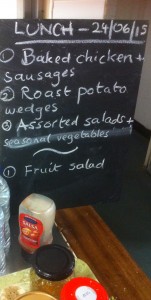 LUNCH - 24/06/15
① Baked chicken +
sausages
② Roast potato
wedges
③ Assorted salads +
seasonal vegetables
① Fruit salad